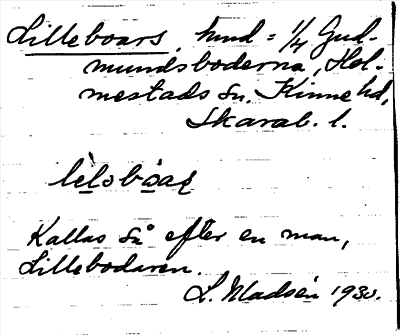 Lilleboars, hmd = 1/4 Gud-
mundsboderna, Hol-
mestads sn. Kinne hd,
Skarab. l.
Kallas så efter en man,
Lillebodaren.
L. Madsén 1930.